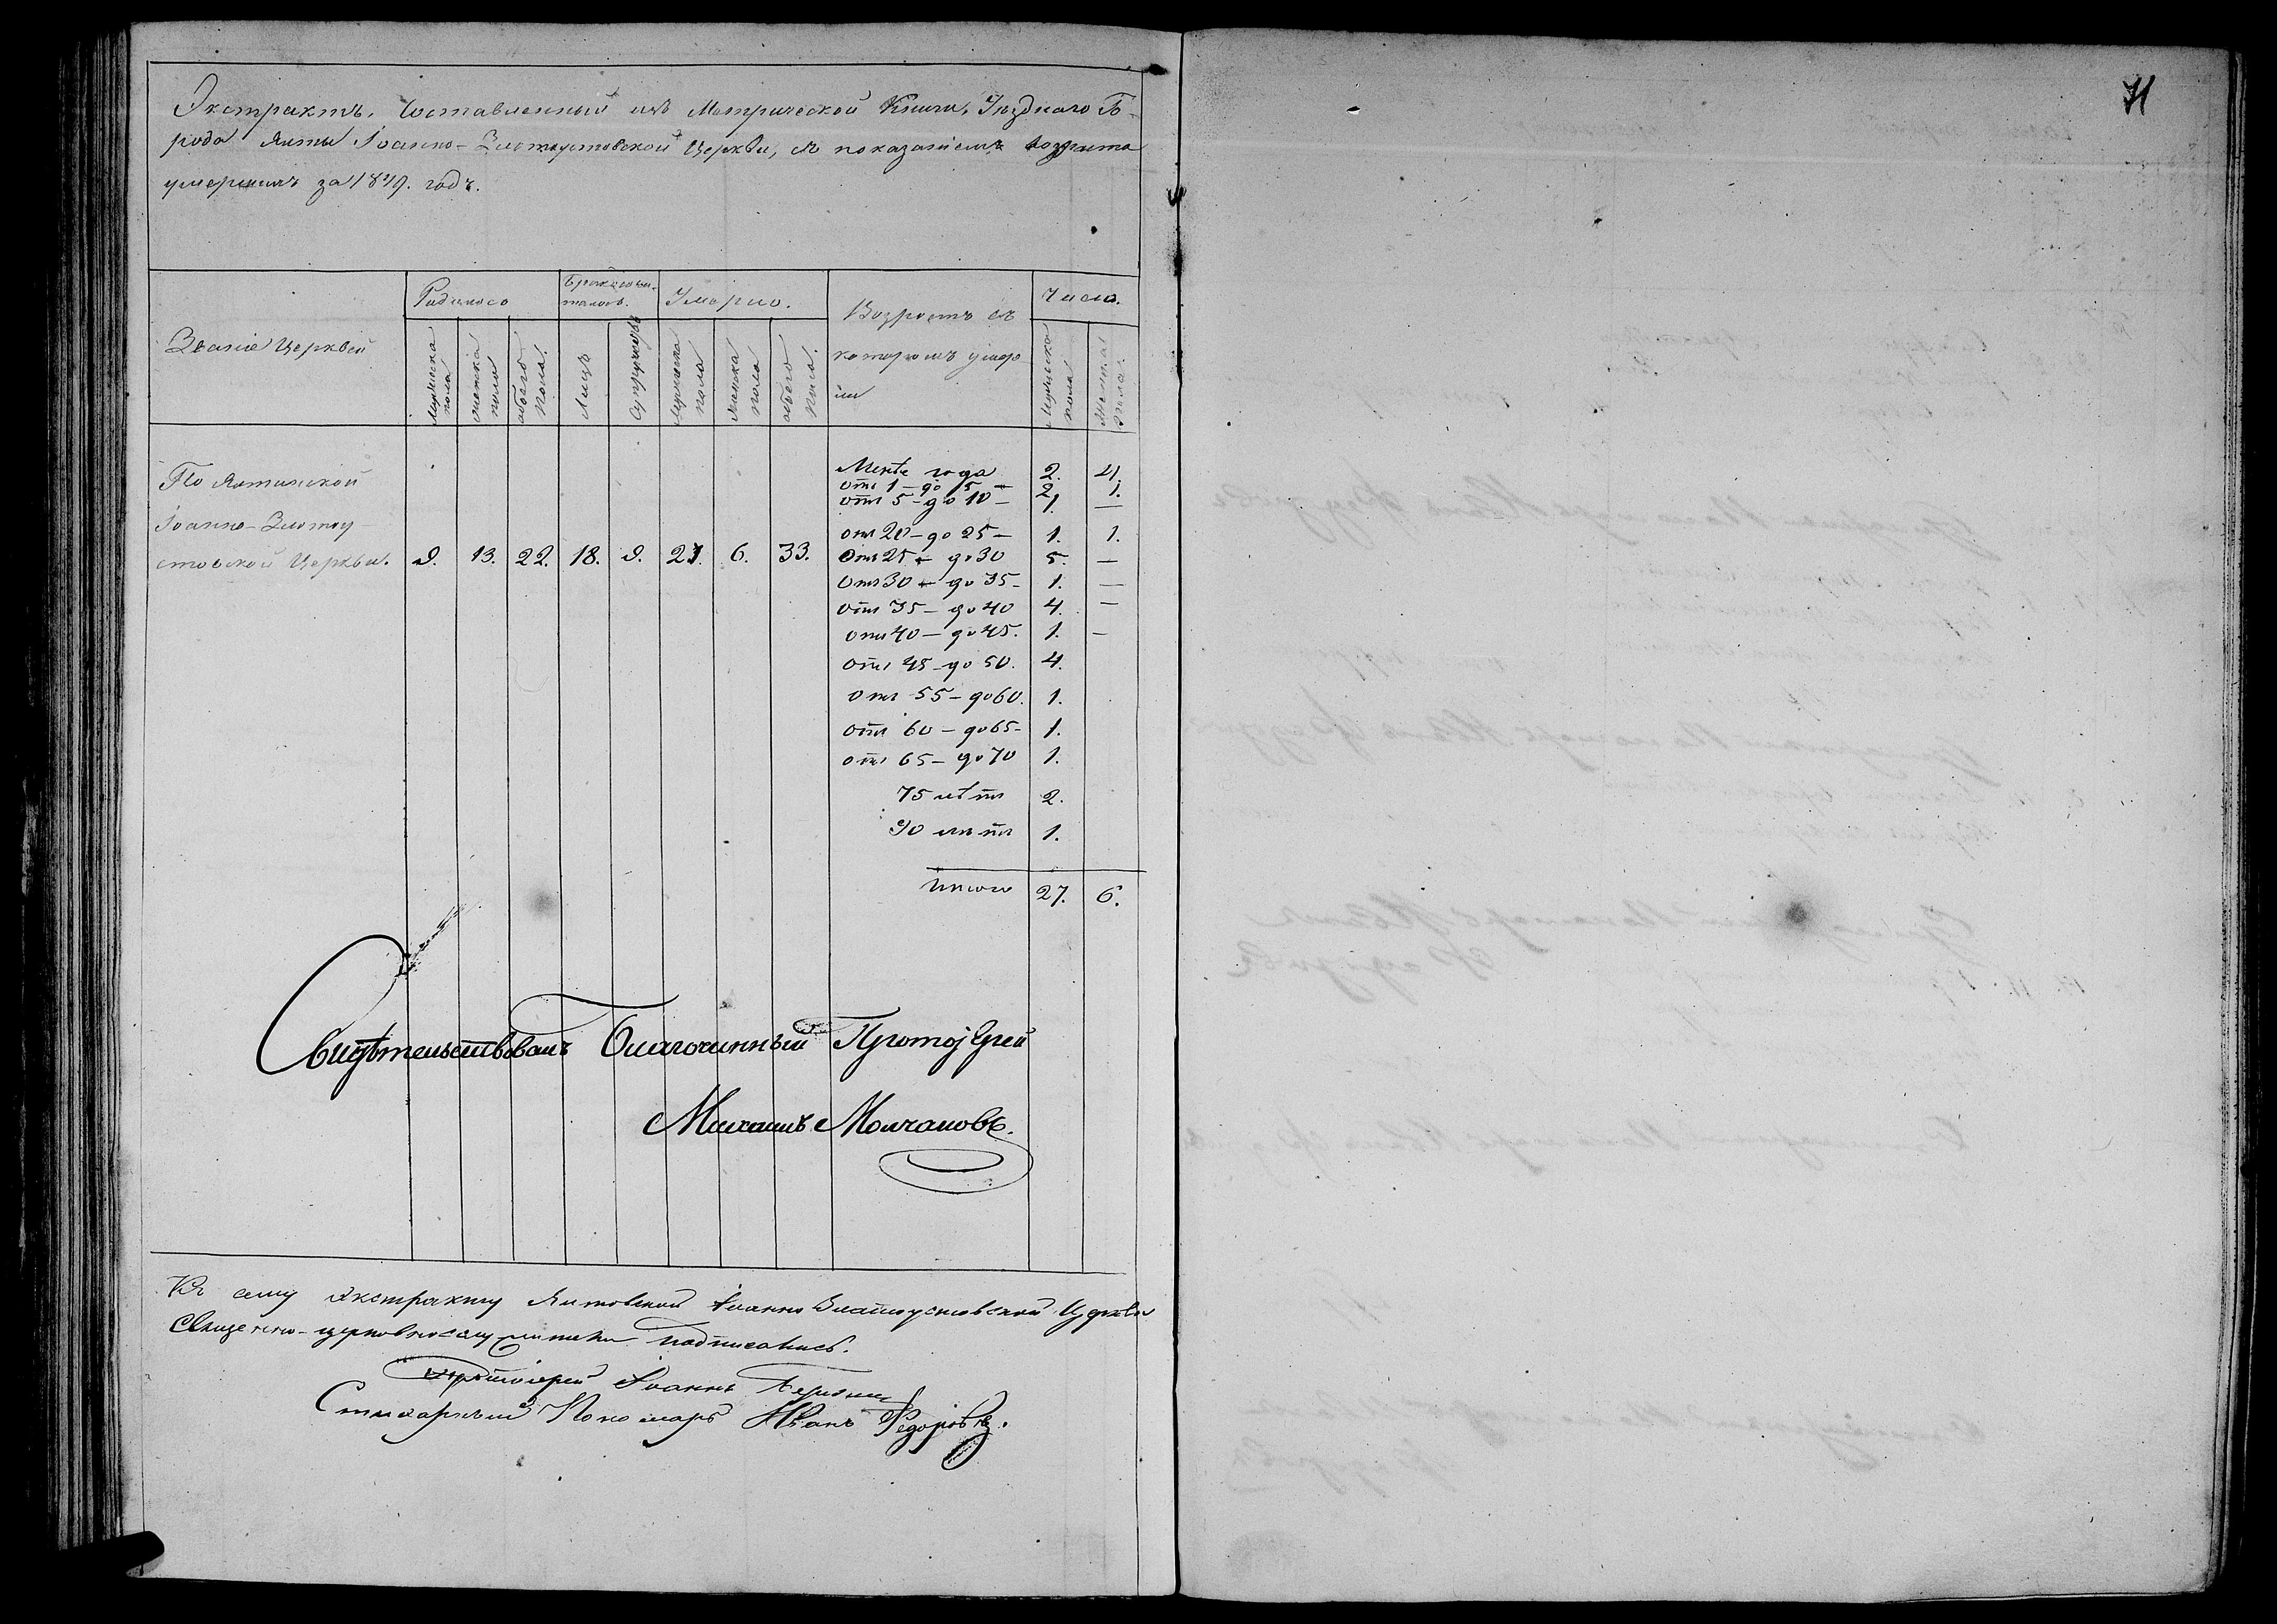 Экстрактъ, Составленный изъ Метрической Книги, Уѣзднаго Го-
рода Ялты Іоанно-Златоустовской Церкви, съ показаніемъ возраста
умершимъ за 1849. годъ.
Званіе Церквей
Родилося
Бракосочи-
талось.
Умерло.
Возрастъ въ
которомъ умер
ли
Число.
Мужеска пола
женска пола
обоего пола.
Лицъ
Супружествъ
Мужеска пола
Женска пола
обоего пола.
Мужеска пола
Женска пола.
По Ялтинской
Іоанно-Златоу-
стовской Церкви. 9. 13. 22. 18. 9. 27. 6. 33.
Менѣе года 2. 4.
отъ 1 – до 5 – 2. 1.
отъ 5 – до 10 – 1. —
отъ 20 – до 25 – 1. 1.
отъ 25 – до 30 5. —
отъ 30 – до 35 – 1. —
отъ 35 – до 40 4. —
отъ 40 – до 45. 1. —
отъ 45 – до 50. 4.
отъ 55 – до 60. 1.
отъ 60 – до 65 – 1.
отъ 65 – до 70 1.
75 лѣтъ 2.
90 лѣтъ 1.
Итого 27. 6.
Свидѣтельствовалъ Благочинный Протоjерей
Михаилъ Молчановъ.
Къ сему экстракту Ялтовской Іоанно Златоустовской Церкви
Священно-церковнослужители подписались.
Протоіерей Іоаннъ
Стихарный Пономарь Иванъ Федоровъ.
71